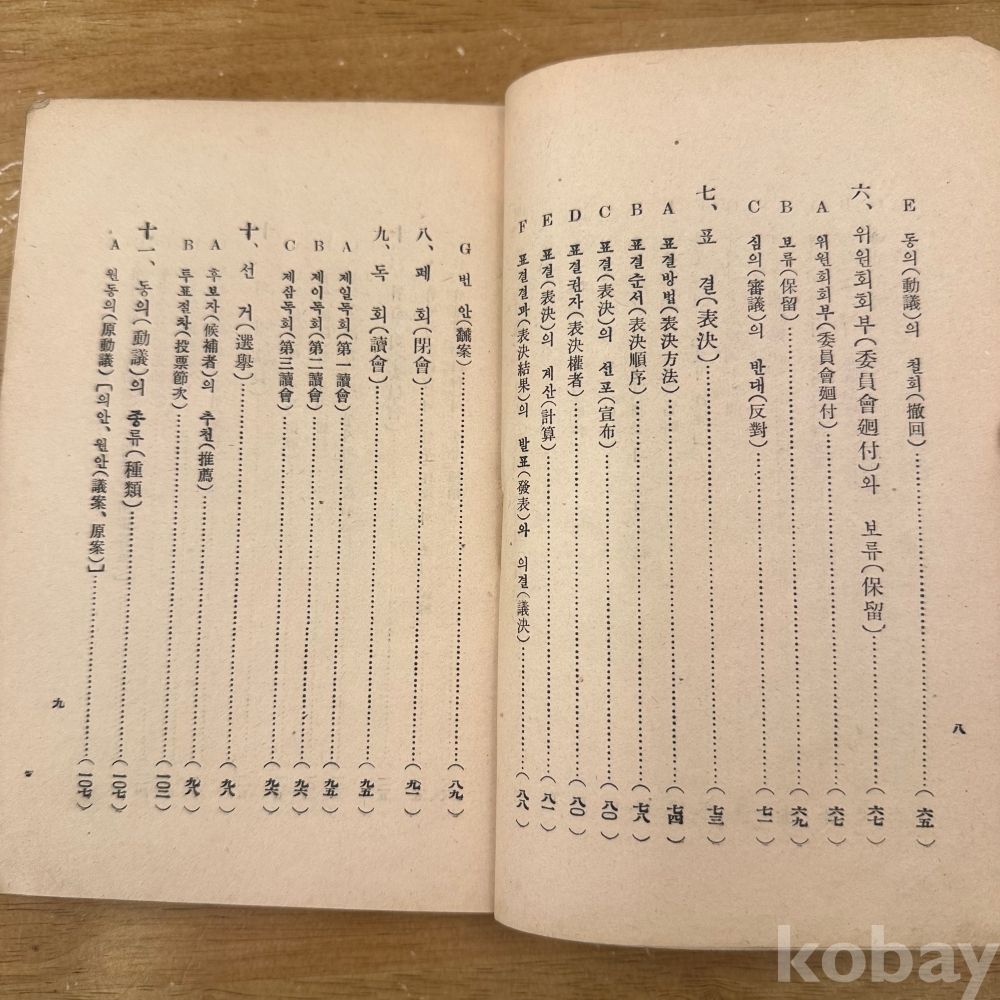 E 동의(動議)의 철회(撤回)………(六五)
六、위원회회부(委員會廻付)와 보류(保留)………(六七)
A 위원회회부(委員會廻付)………(六七)
B 보류(保留)………(六九)
C 심의(審議)의 반대(反對)………(七一)
七、표 결(表決)………(七三)
A 표결방법(表決方法)………(七四)
B 표결순서(表決順序)………(七八)
C 표결(表決)의 선포(宣布)………(八〇)
D 표결권자(表決權者)………(八〇)
E 표결(表決)의 계산(計算)………(八一)
F 표결결과(表決結果)의 발표(發表)와 의결(議決)………(八八)
八
G 번 안(飜案)………(八九)
八、폐 회(閉會)………(九一)
九、독 회(讀會)………(九五)
A 제일독회(第一讀會)………(九五)
B 제이독회(第二讀會)………(九六)
C 제삼독회(第三讀會)………(九六)
十、선 거(選擧)………(九八)
A 후보자(候補者)의 추천(推薦)………(九八)
B 투표절차(投票節次)………(一〇二)
十一、동의(動議)의 종류(種類)………(一〇七)
A 원동의(原動議)[의안、원안(議案、原案)]………(一〇七)
九
kobay